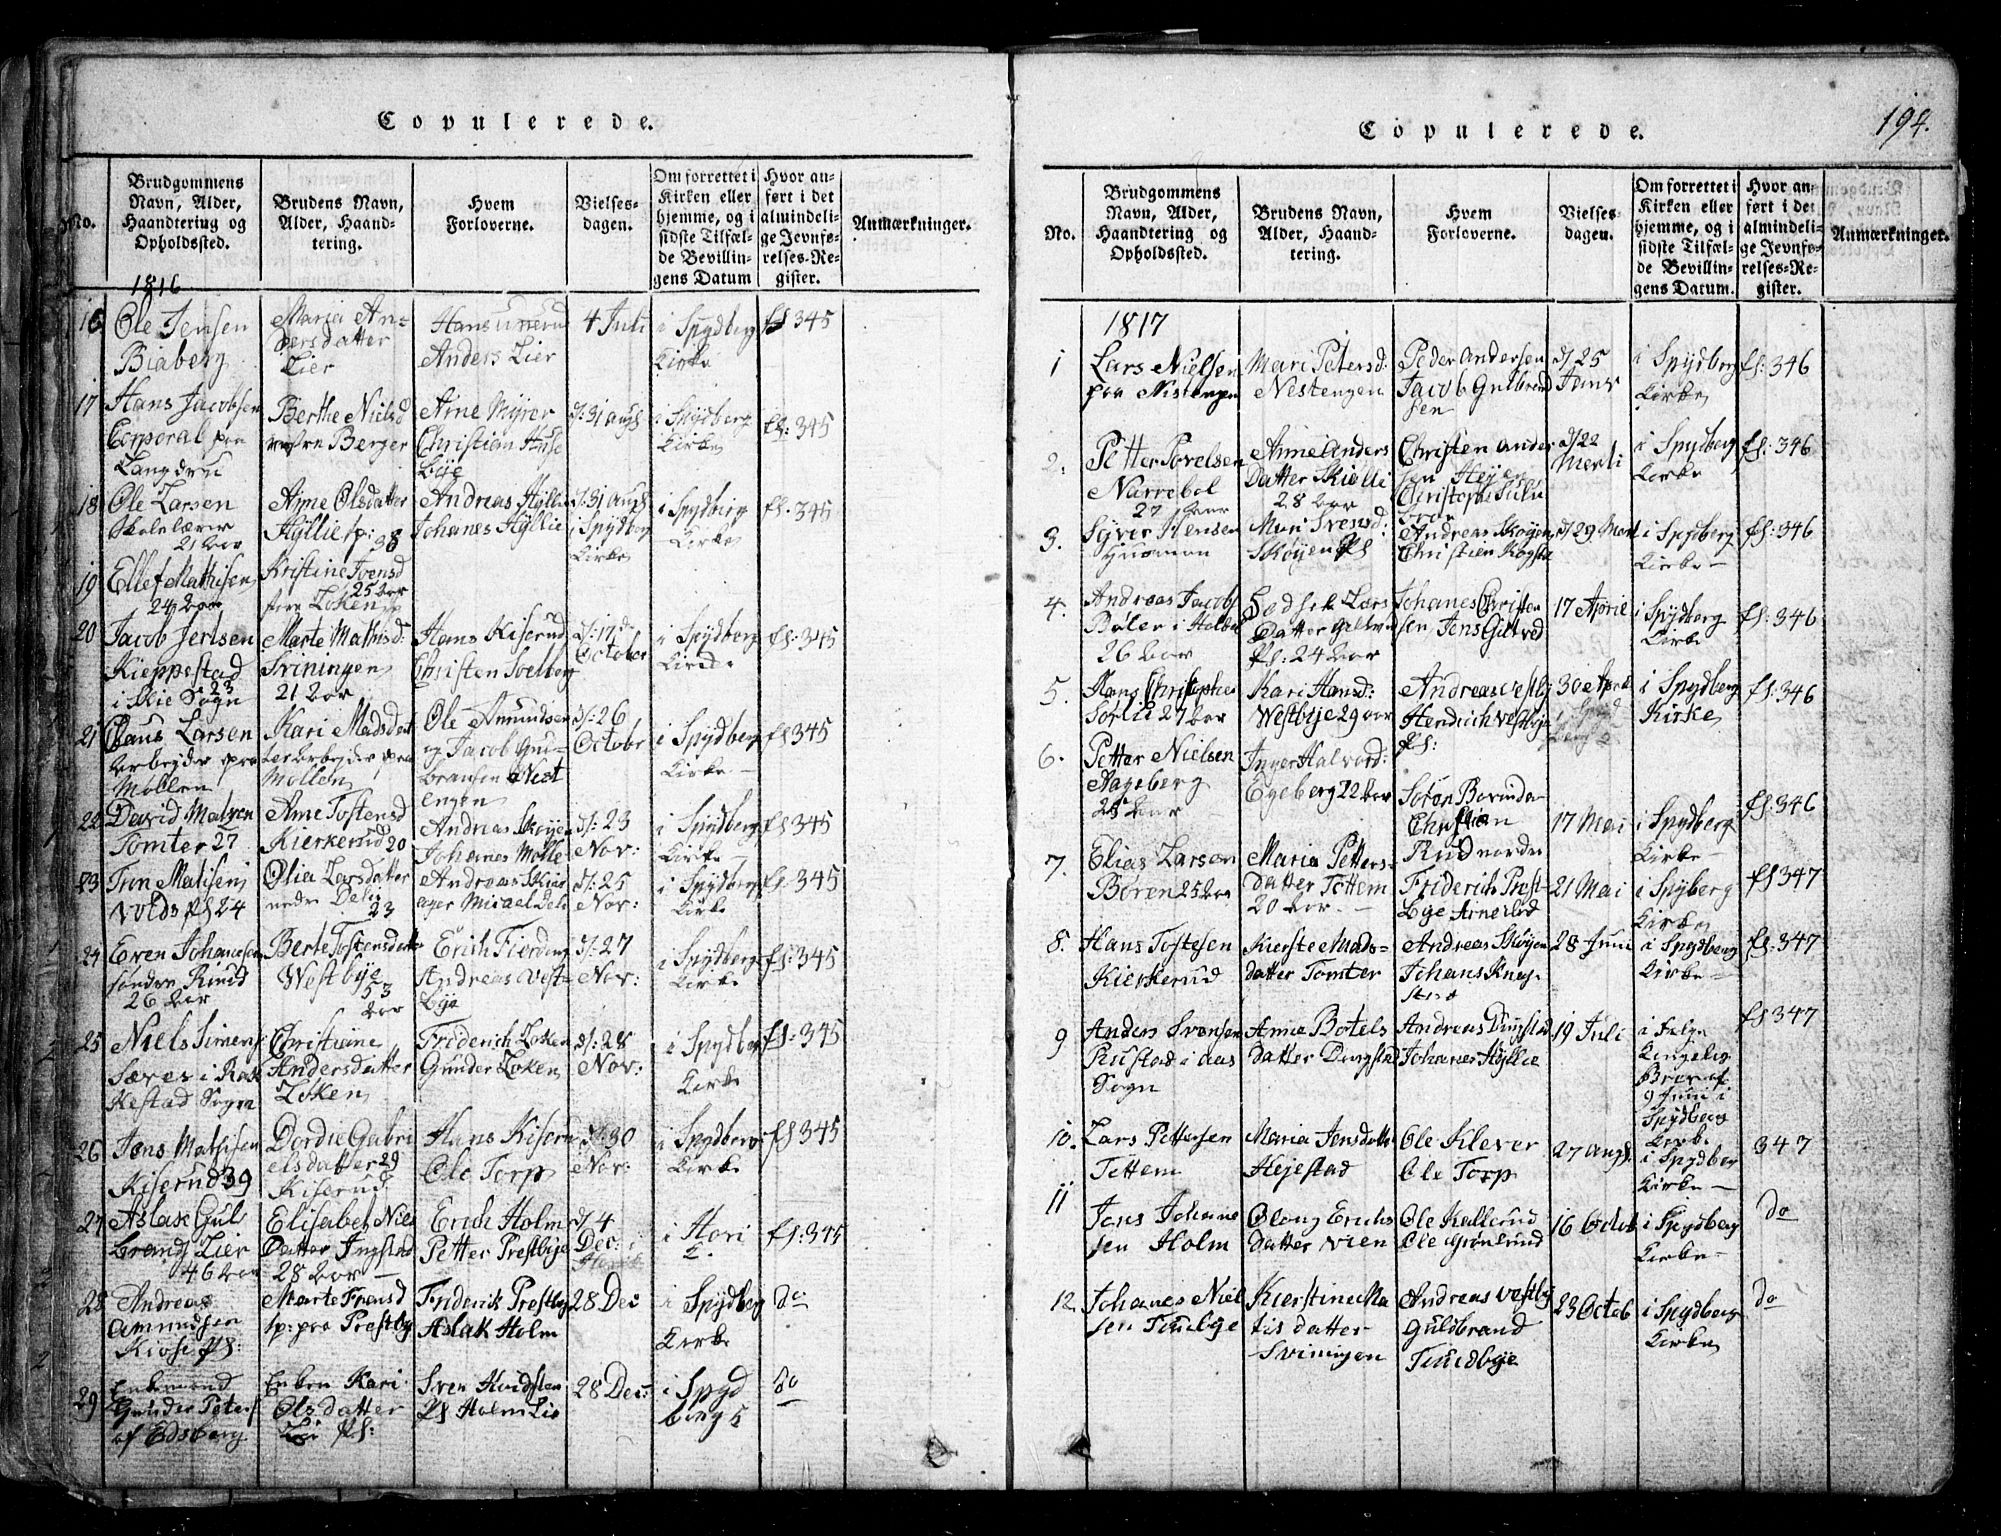 Copulerede.
No.
Brudgommens
Navn, Alder,
Haandtering og
Opholdssted.
Brudens Navn,
Alder, Haand-
tering.
Hvem
Forloverne.
Vielses-
dagen.
Om forrettet i
Kirken eller
hjemme, og i
sidste Tilfæl-
de Bevillin-
gens Datum
Hvor an-
ført i det
almindeli-
ge Jevnfø-
relses-Re-
gister.
Anmærkninger.
1816
16 Ole Jensen
Biaberg
Maria An-
dersdatter
Lier
Hans
Anders Lier
4 Juli
i Spydberg
Kirke
fl 345
17 Hans Jacobsen
Corporal paa
Berthe Nielsd
Berger
Arne Myrer
Christian Huse
bye
d: 31 aug
i Spydberg
Kirke
fl: 345
18 Ole Larsen
Skolelærer
21 aar
Anne Olsdatter
Hyllie
38
Andreas Hyllie
Johanes Hyllie
d: 31 aug
i Spydberg
Kirke
i Spydberg
Kirke
fl. 345
19 Ellef Mathisen
24 aar
Kristine Svensd
25 aar
Løken
20 Jacob Jertsen
Kieppestad
i Skie Sogn 23
Marte Mathisd:
Sviningen
21 aar
Hans Kiserud
Christen Solberg
d: 17 d
October
i Spydberg
Kirke
fl: 345
21 Claus Larsen
arbeyder paa
Møllen
Kari Madsdat
ter arbeyder paa
Møllen
Ole Amundsen
og Jacob Gul-
bransen Nest
engen
d: 26
Octobr
i Spydberg
Kirke
fl 345
22 David Madsen
Tomter 27
Anne Tostensd
Kierkerud 20
Andreas Skøyen
Johanes Mølle
d: 23
Nov:
i Spydberg
Kirke
fl 345
23 Tron Matisen
Volds Pl 24
Olia Larsdatter
nedre Deli
23
Andreas Skiør
ager Micael Deli
d: 25
Nov:
i Spydberg
Kirke
fl. 345
24 Even Johanesen
søndre Ruud
26 aar
Berte Tostensdatter
Westbye
53
aar
Erich Fierding
Andreas Vest-
bye
d: 27
Nov:
i Spydberg
Kirke
fl: 345
25 Niels Simens
Særes i Rak
kestad Sogn
Christiine
Andersdatter
Løken
Friderich Løken
Gunder Løken
d: 28
Nov:
i Spydberg
Kirke
fl: 345
26 Jens Mathisen
Kiserud 39
Dordie Gabri
elsdatter 29
Kiserud
Hans Kiserud
Ole Torp
d: 30
Nov:
i Spydberg
Kirke
fl 345
27 Aslak Gul
brands Lier
46 aar
Elisabet Niels
datter Jngstad
28 aar
Erich Holm
Petter Prestbye
d: 4
Dec:
i Hori
K.
fl: 345
28 Andreas
Amundsen
Kiose Pl:
Marte Fransd
tp: paa Prestby
Friderik Prestbye
Aslak Holm
28 Dec
i Spydberg
Kirke
do
29 Enkemand
Gunder Peters
af Edsberg
Enken Kari
Olsdatter
Lier Pl:
Sven Hvidsten
Pl Holm Lie
28 Dec:
i Spyd
berg
do
Copulerede.
194.
No.
Brudgommens
Navn, Alder,
Haandtering og
Opholdssted.
Brudens Navn,
Alder, Haand-
tering.
Hvem
Forloverne.
Vielses-
dagen.
Om forrettet i
Kirken eller
hjemme, og i
sidste Tilfæl-
de Bevillin-
gens Datum.
Hvor an-
ført i det
almindeli-
ge Jevnfø-
relses-Re-
gister.
Anmærkninger.
1817
1 Lars Nielsen
paa Nistengen
Mari Petersd.
Nestengen
Peder Andersen
Jacob Gulbrand
sen
d/ 25
Janr
i Spydberg
Kirke
fl: 346
2. Petter Povelsen
Narrebøl
27 aar
Anne Anders
datter Skiølli
28 aar
Christen Ander
sen Heyer
Christoph
d/ 22
Merti
i Spydberg
Kirke
fl: 346
3. Syver Hensen
Mari Svensd:
Skøyen Pl
Andreas Skøyen
Christien
d/ 29 Mart
i Spydberg
Kirke
fl: 346
4. Andreas Jacobs
Bøler i Hobøl
26 aar
Sedsel Lars
datter Gillved
Pl: 24 aar
Johanes Christen
sen Jens Gillved
17 April
i Spydberg
Kirke
fl: 346
5. Hans Christophes
Sørlie 27 aar
Kari Hansd:
Westbye 29 aar
Andreas Vestby
Hendrich Vestbye
Pl:
30 April
i Spydberg
Kirke
fl: 346
6. Petter Nielsen
Aageberg
25 aar
Inger Halvord:
Egeberg 22 aar
Søren Bovinder
Christian
Rud nordre
17 Mai
i Spydberg
Kirke
fl: 346
7. Elias Larsen
Børen 25 aar
Maria Petters-
datter Tøttem
20 aar.
Friderich Prest-
bye Arne
21 Mai
i Spyberg
Kirke
fl 347
8. Hans Tostesen
Kierkerud
Kierstie Mads-
datter Tomter
Andreas Skøyen
Johans Knap-
stad
28 Juni
i Spydberg
Kirke
fl: 347
9 Anders Svensen
i aas
Sogn
Anna Botels
datter Dungstad
Andreas Dungstad
Johanes Hyllie
19 Juli
i Følge
Kongelig
Brev af
9 Juni i
Spydberg
Kirke
fl 347
10. Lars Pettersen
Tøttem
Maria Jensdatter
Hejestad
Ole Klever
Ole Torp
27 aug.
i Spydberg
Kirke
347
11 Jens Johane
sen Holm
Oloug Erichs
datter Vien
Ole Kallerud
Ole Grønlund
16 Octob
i Spydberg
Kirke
do
12. Johanes Niel
sen
Kierstine Ma
tisdatter
Sviningen
Andreas Vestby
Guldbrand
Tuudbye
23 Octob
i Spydberg
Kirke
do